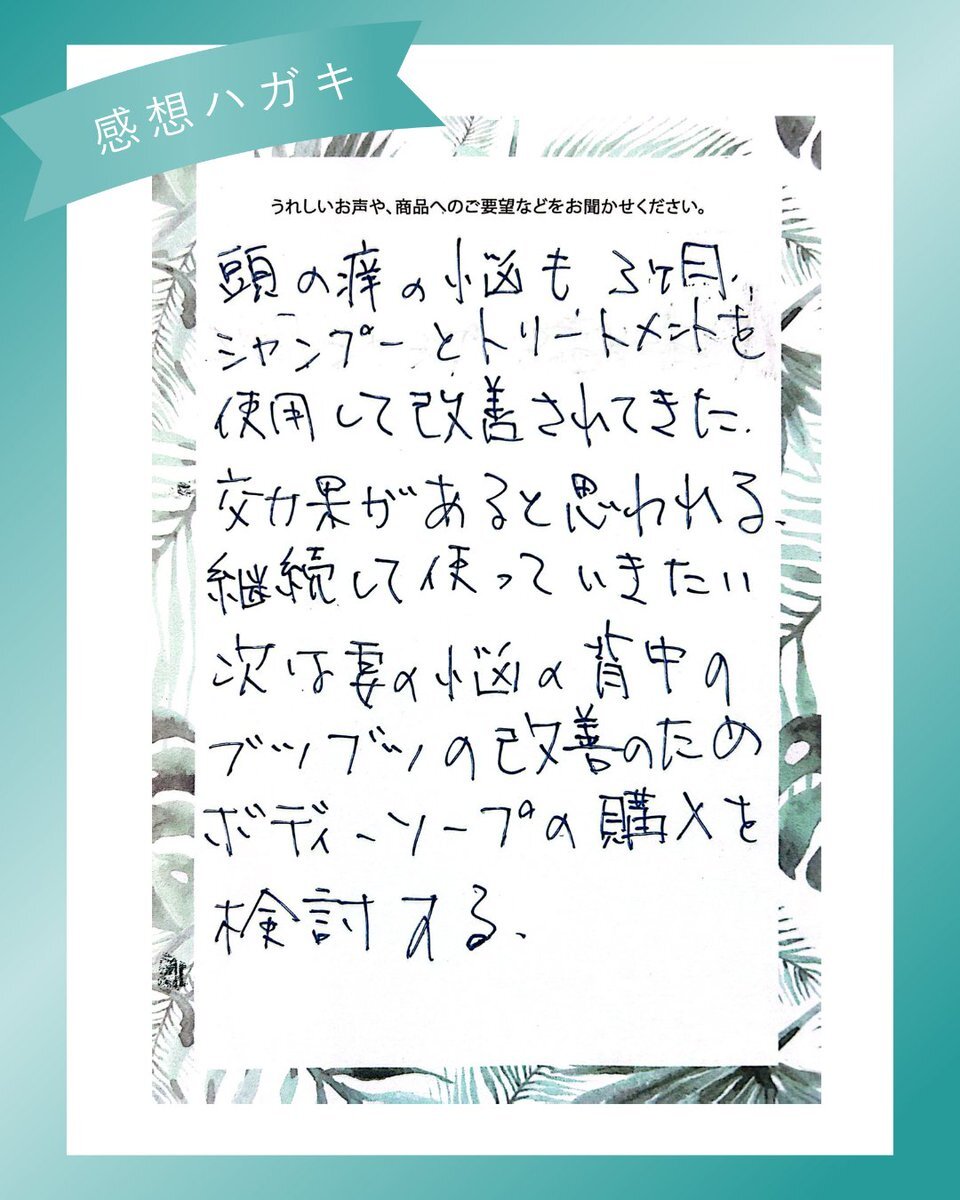 感想ハガキ
うれしいお声や、商品へのご要望などをお聞かせください。
頭の痒の悩も3ケ月、
シャンプーとトリートメントを
使用して改善されてきた、
効果があると思われる、
継続して使っていきたい
次は妻の悩の背中の
ブツブツの改善のため
ボディーソープの購入を
検討する、